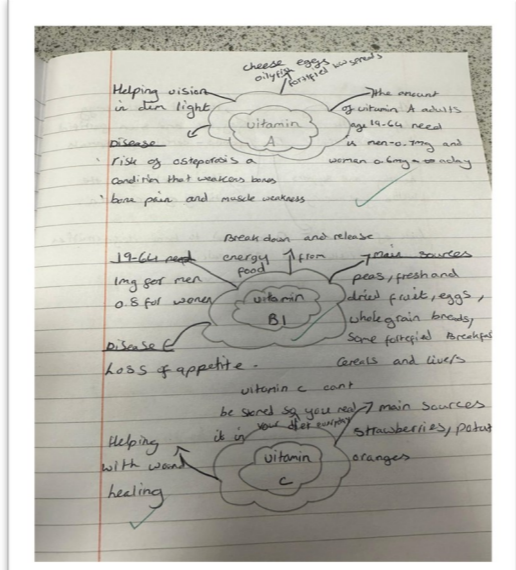 cheese eggs
oily fish fortified low spreads
Helping vision
in dim light
vitamin
A
the amount
of vitamin A adults
age 19-64 need
is men-0.7mg and
women 0.6mg a day
Disease
risk of osteporosis a
condition that weakens bones
bone pain and muscle weakness
Break down and release
energy from
food
19-64 need
1mg for men
0.8 for women
vitamin
B1
main sources
peas, fresh and
dried fruit, eggs,
wholegrain breads,
some fortified Breakfast
cereals and livers
Disease
Loss of appetite.
vitamin c cant
be stored so you need
it in your diet everyday
main sources
strawberries, potat
oranges
Helping
with wound
healing
vitamin
C